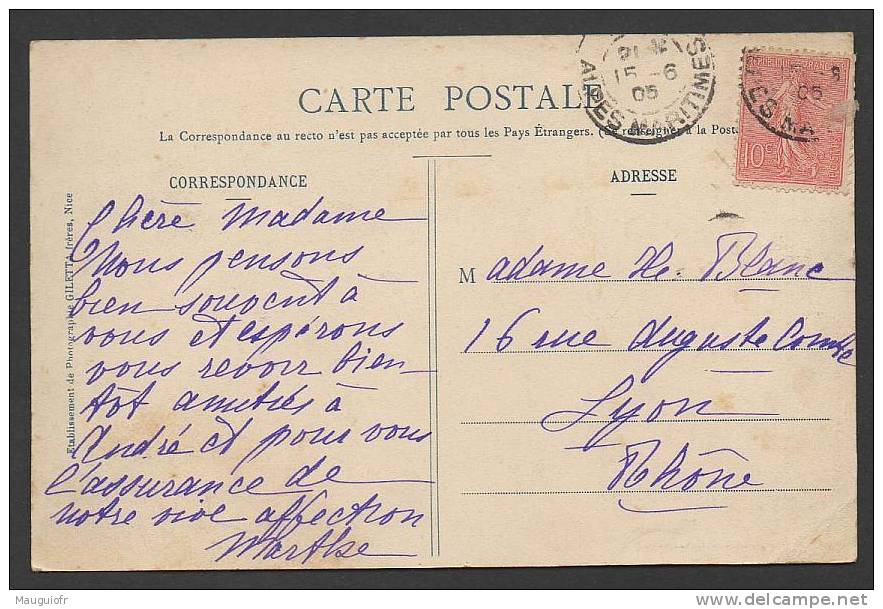 CARTE POSTALE
La Correspondance au recto n'est pas acceptée par tous les Pays Étrangers. (Se renseigner à la Poste
CORRESPONDANCE
ADRESSE
Chère Madame
Nous pensons
bien souvent à
vous et espérons
vous revoir bien-
tôt amitiés à
André et pour vous
l'assurance de
notre vive affection
Marthe
Madame He. Blanc
16 rue Auguste Comte
Lyon
Rhône
Etablissement de Photographie GILETTA frères, Nice
15 -6
05
ALPES MARITIMES
10c
Mauguiofr
delcampe.net